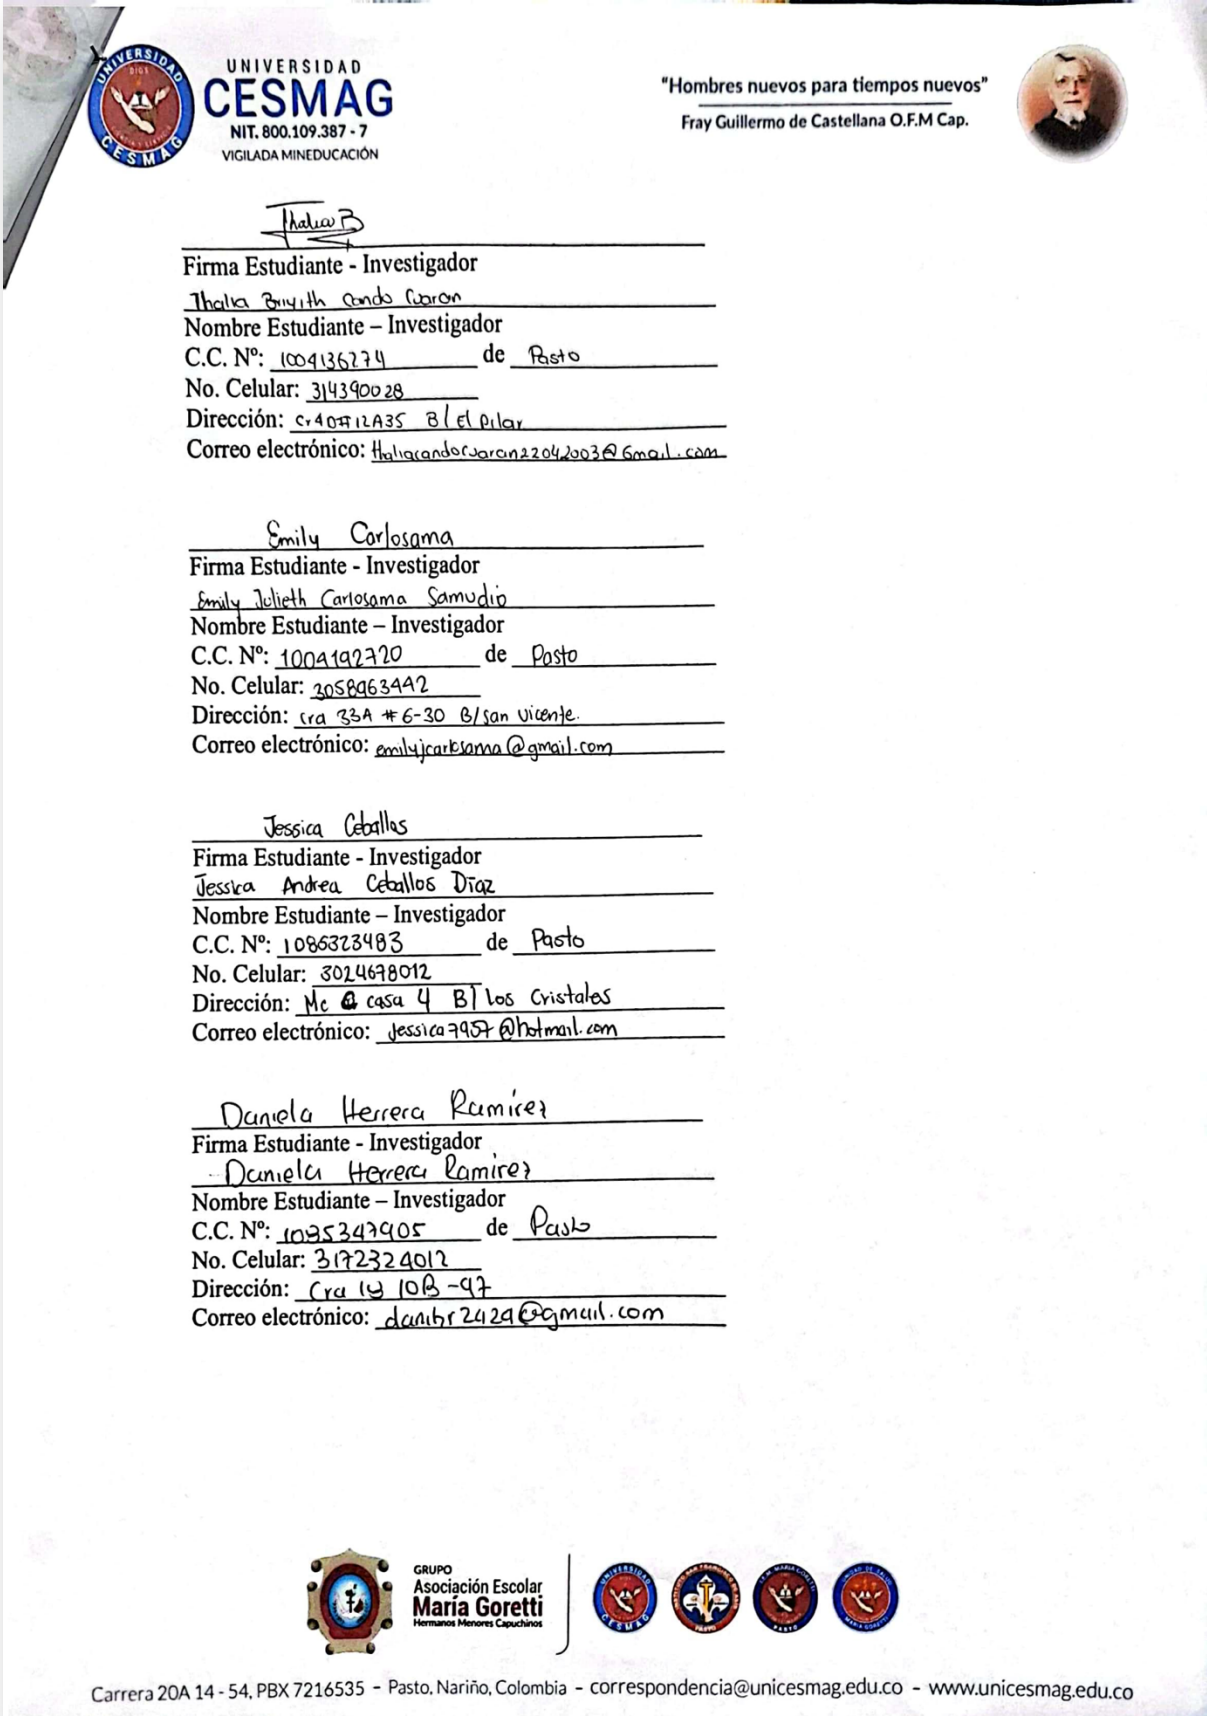 UNIVERSIDAD
CESMAG
NIT. 800.109.387 - 7
VIGILADA MINEDUCACIÓN
"Hombres nuevos para tiempos nuevos"
Fray Guillermo de Castellana O.F.M Cap.
Thalia B
Firma Estudiante - Investigador
Thalia Briyith Cando Cuaran
Nombre Estudiante – Investigador
C.C. Nº: 1004136274 de Pasto
No. Celular: 314390028
Dirección: Cr40#12A35 B/ El Pilar
Correo electrónico: thaliacandocuaran22042003@Gmail.com
Emily Carlosama
Firma Estudiante - Investigador
Emily Julieth Carlosama Samudio
Nombre Estudiante – Investigador
C.C. Nº: 1004192720 de Pasto
No. Celular: 3058963442
Dirección: cra 33A # 6-30 B/san vicente.
Correo electrónico: emilyjcarlosama@gmail.com
Jessica Ceballos
Firma Estudiante - Investigador
Jessica Andrea Ceballos Díaz
Nombre Estudiante – Investigador
C.C. Nº: 1086323483 de Pasto
No. Celular: 3024678012
Dirección: Mc casa 4 B/ Los Cristales
Correo electrónico: Jessica7957@hotmail.com
Daniela Herrera Ramirez
Firma Estudiante - Investigador
Daniela Herrera Ramirez
Nombre Estudiante – Investigador
C.C. Nº: 1085347905 de Pasto
No. Celular: 3172324012
Dirección: Cra 10B-97
Correo electrónico: @gmail.com
GRUPO
Asociación Escolar
María Goretti
Hermanos Menores Capuchinos
Carrera 20A 14 - 54, PBX 7216535 - Pasto, Nariño, Colombia - correspondencia@unicesmag.edu.co - www.unicesmag.edu.co